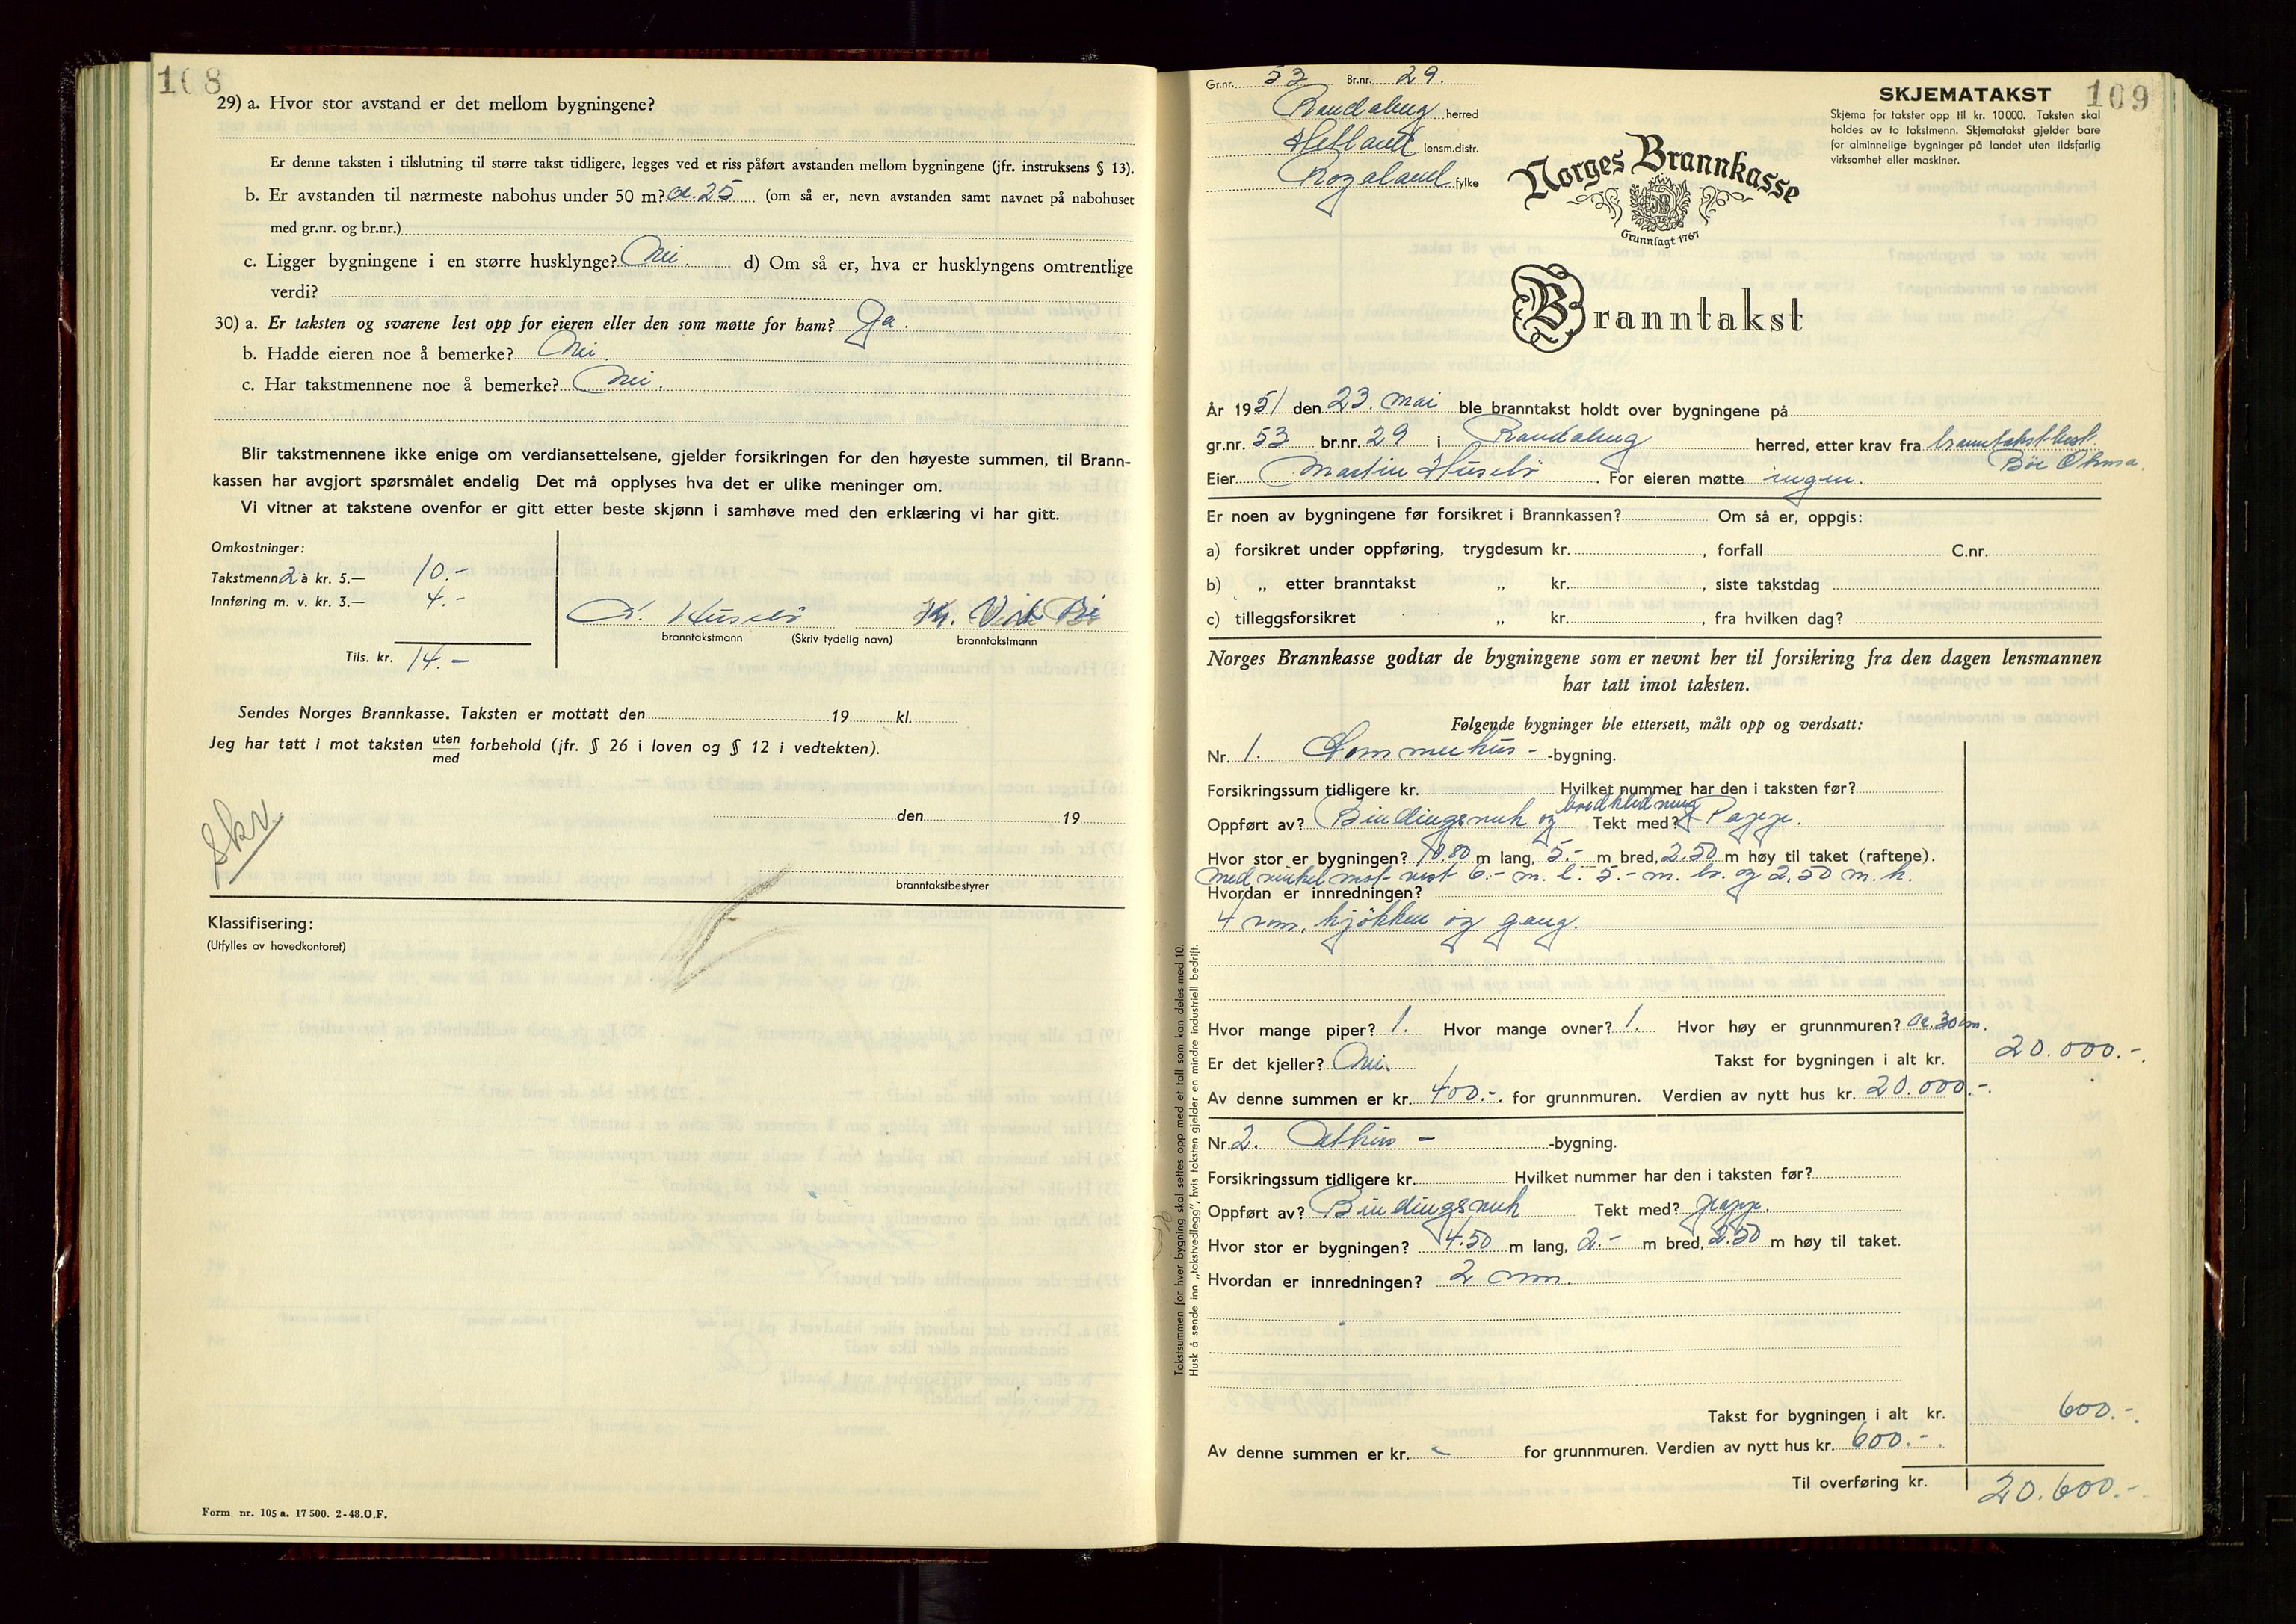 108
29) a. Hvor stor avstand er det mellom bygningene?
Er denne taksten i tilslutning til større takst tidligere, legges ved et riss påført avstanden mellom bygningene (jfr. instruksens § 13).
b. Er avstanden til nærmeste nabohus under 50 m? ca. 25 (om så er, nevn avstanden samt navnet på nabohuset
med gr.nr. og br.nr.)
c. Ligger bygningene i en større husklynge? Nei. d) Om så er, hva er husklyngens omtrentlige
verdi?
30) a. Er taksten og svarene lest opp for eieren eller den som møtte for ham? Ja.
b. Hadde eieren noe å bemerke? Nei
c. Har takstmennene noe å bemerke? Nei.
Blir takstmennene ikke enige om verdiansettelsene, gjelder forsikringen for den høyeste summen, til Brann-
kassen har avgjort spørsmålet endelig Det må opplyses hva det er ulike meninger om.
Vi vitner at takstene ovenfor er gitt etter beste skjønn i samhøve med den erklæring vi har gitt.
Omkostninger:
Takstmenn 2 à kr. 5.— 10.-
Innføring m. v. kr. 3.— 4.-
Tils. kr. 14.-
Husebø
branntakstmann (Skriv tydelig navn) branntakstmann
Sendes Norges Brannkasse. Taksten er mottatt den 19 kl.
Jeg har tatt i mot taksten uten/med forbehold (jfr. § 26 i loven og § 12 i vedtekten).
den 19
Skv.
branntakstbestyrer
Klassifisering:
(Utfylles av hovedkontoret)
Form. nr. 105 a. 17 500. 2-48.O.F.
Gr.nr. 53 Br.nr. 29.
Randaberg herred
Hetland lensm.distr.
Rogaland fylke
SKJEMATAKST
109
Skjema for takster opp til kr. 10 000. Taksten skal
holdes av to takstmenn. Skjematakst gjelder bare
for alminnelige bygninger på landet uten ildsfarlig
virksomhet eller maskiner.
Norges Brannkasse
Grunnlagt 1767
Branntakst
År 1951 den 23. mai ble branntakst holdt over bygningene på
gr.nr. 53 br.nr. 29 i Randaberg herred, etter krav fra branntakstbest.
Eier Martin Husebø. For eieren møtte ingen.
Er noen av bygningene før forsikret i Brannkassen? Om så er, oppgis:
a) forsikret under oppføring, trygdesum kr. , forfall C.nr.
b) „ etter branntakst „ kr. , siste takstdag
c) tilleggsforsikret „ kr. , fra hvilken dag?
Norges Brannkasse godtar de bygningene som er nevnt her til forsikring fra den dagen lensmannen
har tatt imot taksten.
Følgende bygninger ble ettersett, målt opp og verdsatt:
Nr. 1. Sommerhus- -bygning.
Forsikringssum tidligere kr. Hvilket nummer har den i taksten før?
Oppført av? Bindingsverk og bordkledning Tekt med? Papp.
Hvor stor er bygningen? 10.80 m lang, 5.- m bred, 2.50 m høy til taket (raftene).
med vinkel mot vest 6.- m. l. 5.- m. br. og 2.50 m. h.
Hvordan er innredningen?
4 rom, kjøkken og gang.
Hvor mange piper? 1. Hvor mange ovner? 1. Hvor høy er grunnmuren? ca. 30 cm.
Er det kjeller? Nei. Takst for bygningen i alt kr. 20.000.-
Av denne summen er kr. 400.-. for grunnmuren. Verdien av nytt hus kr. 20.000.-.
Nr. 2. Uthus - -bygning.
Forsikringssum tidligere kr. Hvilket nummer har den i taksten før?
Oppført av? Bindingsverk Tekt med? papp.
Hvor stor er bygningen? 4.50 m lang, 2.- m bred, 2.50 m høy til taket.
Hvordan er innredningen? 2 rom.
Takst for bygningen i alt kr. 600.-.
Av denne summen er kr. - for grunnmuren. Verdien av nytt hus kr. 600.-.
Til overføring kr. 20.600.-
Takstsummen for hver bygning skal settes opp med et tall som kan deles med 10.
Husk å sende inn „takstvedlegg", hvis taksten gjelder en mindre industriell bedrift.